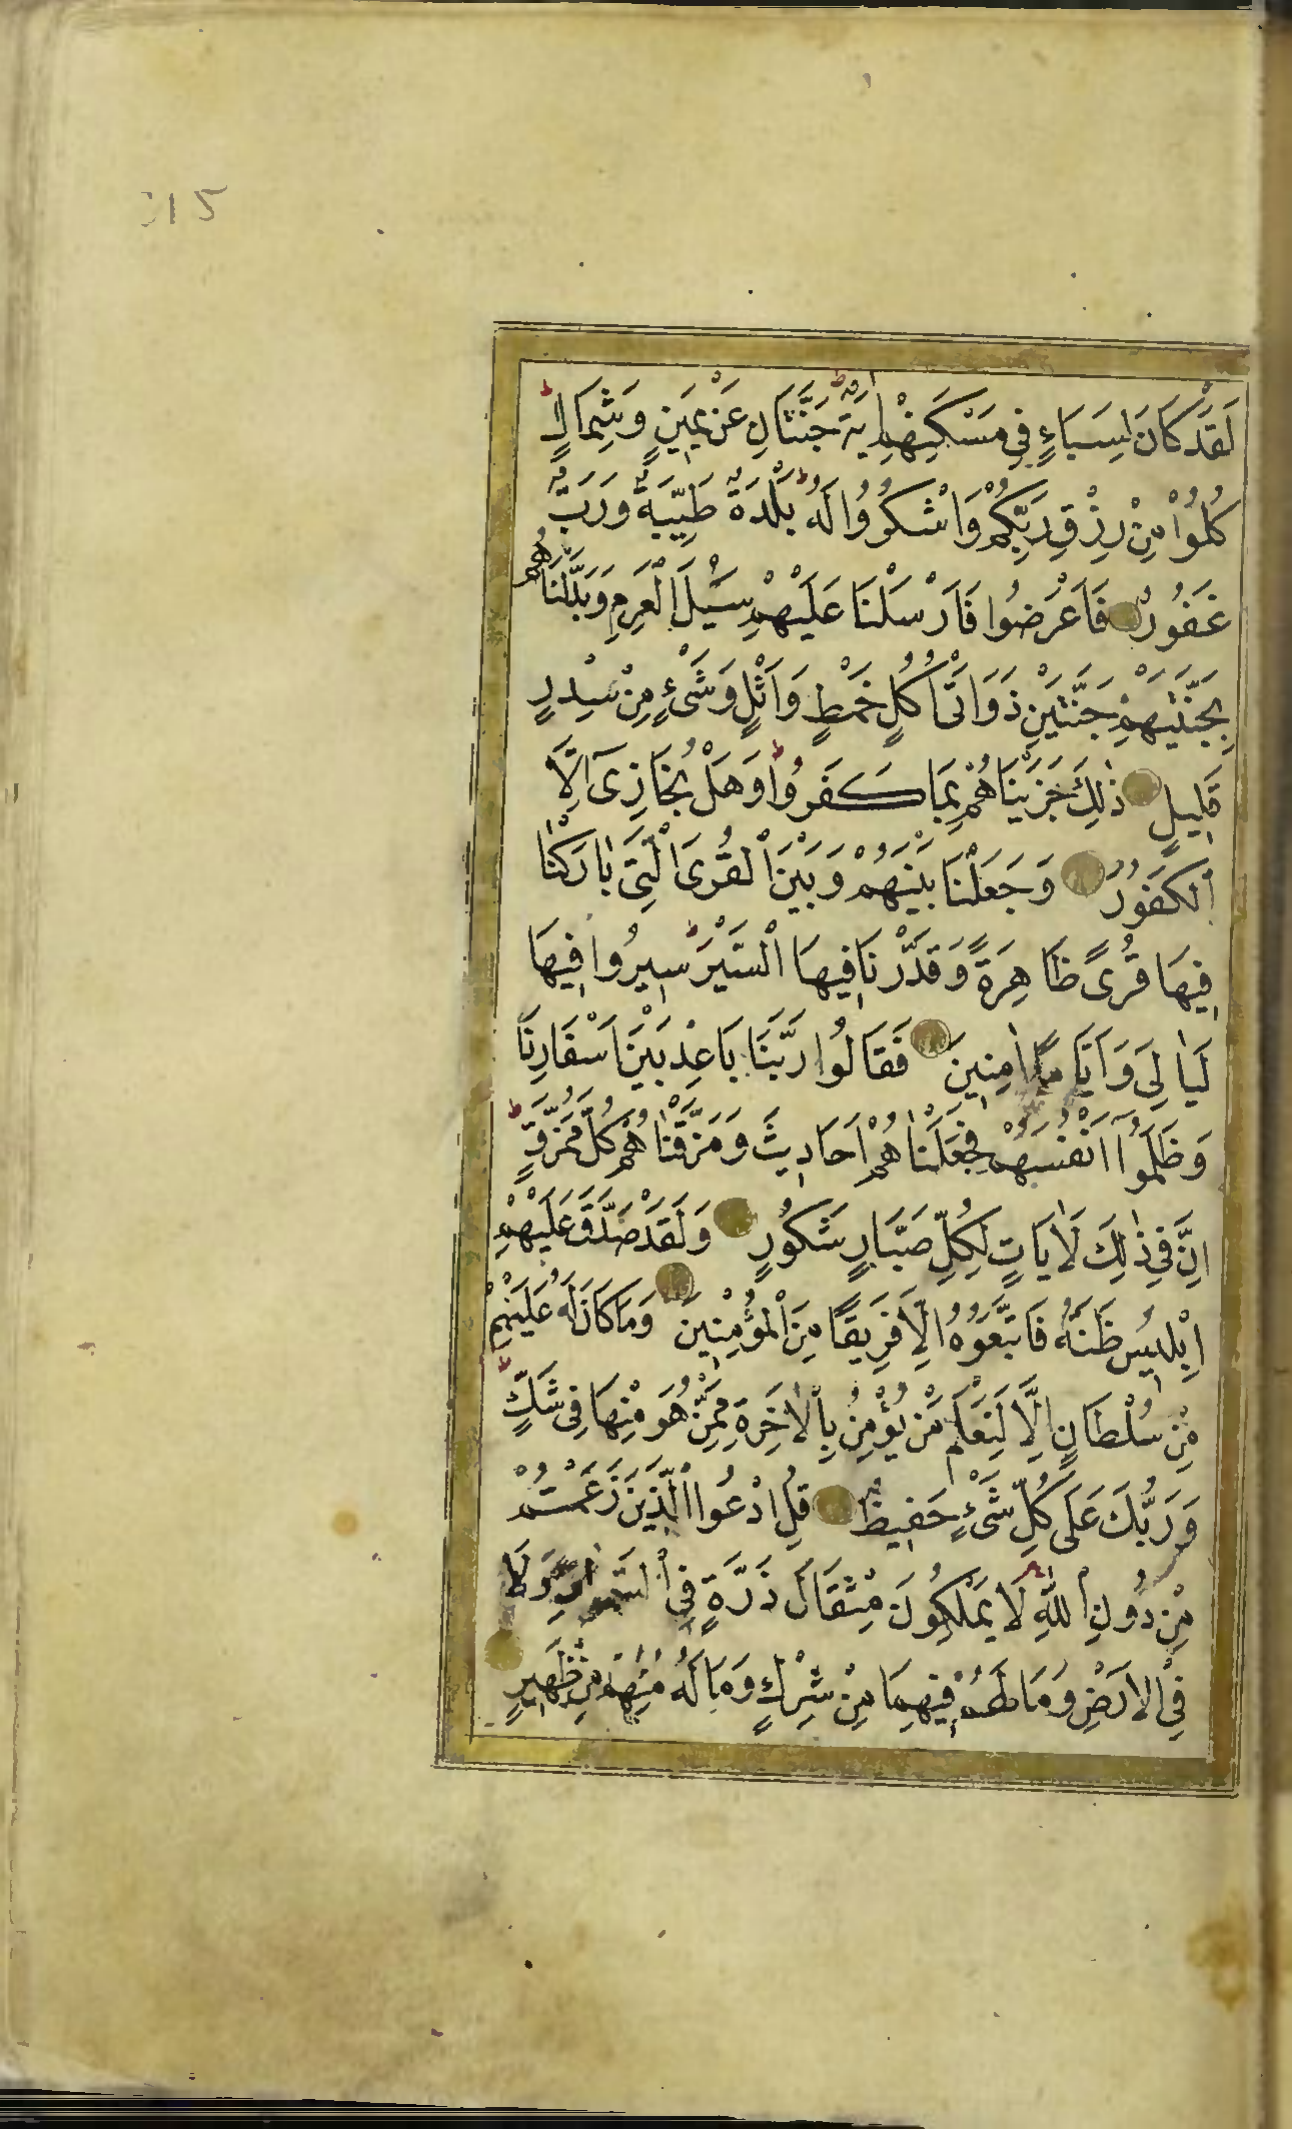 215
لَقَدْ كَانَ لِسَبَاءٍ فِي مَسْكَنِهِمْ اٰيَةٌ جَنَّتَانِ عَنْ يَمِينٍ وَشِمَالٍ ط
كُلُوْا مِنْ رِزْقِ رَبِّكُمْ وَاشْكُرُوا لَهُ ط بَلْدَةٌ طَيِّبَةٌ وَرَبٌّ
غَفُورٌ فَاَعْرَضُوا فَاَرْسَلْنَا عَلَيْهِمْ سَيْلَ الْعَرِمِ وَبَدَّلْنَاهُمْ
بِجَنَّتَيْهِمْ جَنَّتَيْنِ ذَوَاتَىْ اُكُلٍ خَمْطٍ وَاَثْلٍ وَشَىْءٍ مِنْ سِدْرٍ
قَلِيلٍ ذٰلِكَ جَزَيْنَاهُمْ بِمَا كَفَرُوا ط وَهَلْ نُجَازِىٓ اِلَّا
الْكَفُورَ وَجَعَلْنَا بَيْنَهُمْ وَبَيْنَ الْقُرَى الَّتِى بَارَكْنَا
فِيهَا قُرًى ظَاهِرَةً وَقَدَّرْنَا فِيهَا السَّيْرَ ط سِيرُوا فِيهَا
لَيَالِىَ وَاَيَّامًا اٰمِنِينَ فَقَالُوا رَبَّنَا بَاعِدْ بَيْنَ اَسْفَارِنَا
وَظَلَمُوٓا اَنْفُسَهُمْ فَجَعَلْنَاهُمْ اَحَادِيثَ وَمَزَّقْنَاهُمْ كُلَّ مُمَزَّقٍ ط
اِنَّ فِي ذٰلِكَ لَاٰيَاتٍ لِكُلِّ صَبَّارٍ شَكُورٍ وَلَقَدْ صَدَّقَ عَلَيْهِمْ
اِبْلِيسُ ظَنَّهُ فَاتَّبَعُوهُ اِلَّا فَرِيقًا مِنَ الْمُؤْمِنِينَ وَمَا كَانَ لَهُ عَلَيْهِمْ
مِنْ سُلْطَانٍ اِلَّا لِنَعْلَمَ مَنْ يُؤْمِنُ بِالْاٰخِرَةِ مِمَّنْ هُوَ مِنْهَا فِى شَكٍّ ط
وَرَبُّكَ عَلَى كُلِّ شَىْءٍ حَفِيظٌ قُلِ ادْعُوا الَّذِينَ زَعَمْتُمْ
مِنْ دُونِ اللّٰهِ لَا يَمْلِكُونَ مِثْقَالَ ذَرَّةٍ فِى السَّمٰوَاتِ وَلَا
فِى الْاَرْضِ وَمَا لَهُمْ فِيهِمَا مِنْ شِرْكٍ وَمَا لَهُ مِنْهُمْ مِنْ ظَهِيرٍ